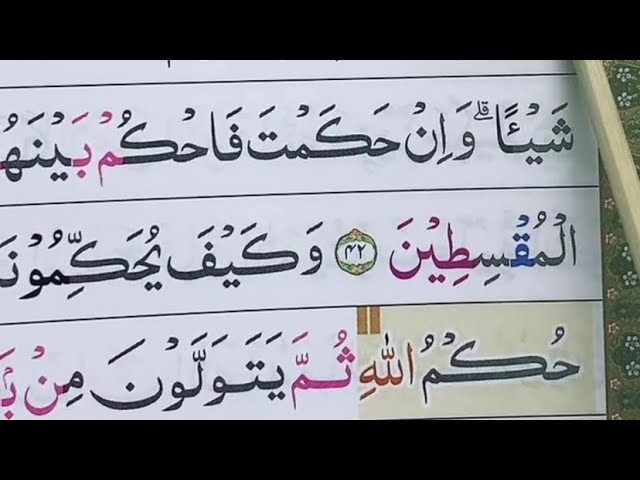 شَيْـًٔا ۗ وَاِنْ حَكَمْتَ فَاحْكُمْ بَيْنَهُ
الْمُقْسِطِيْنَ ۝٤٢ وَكَيْفَ يُحَكِّمُوْنَ
حُكْمُ اللّٰهِ ثُمَّ يَتَوَلَّوْنَ مِنْۢ